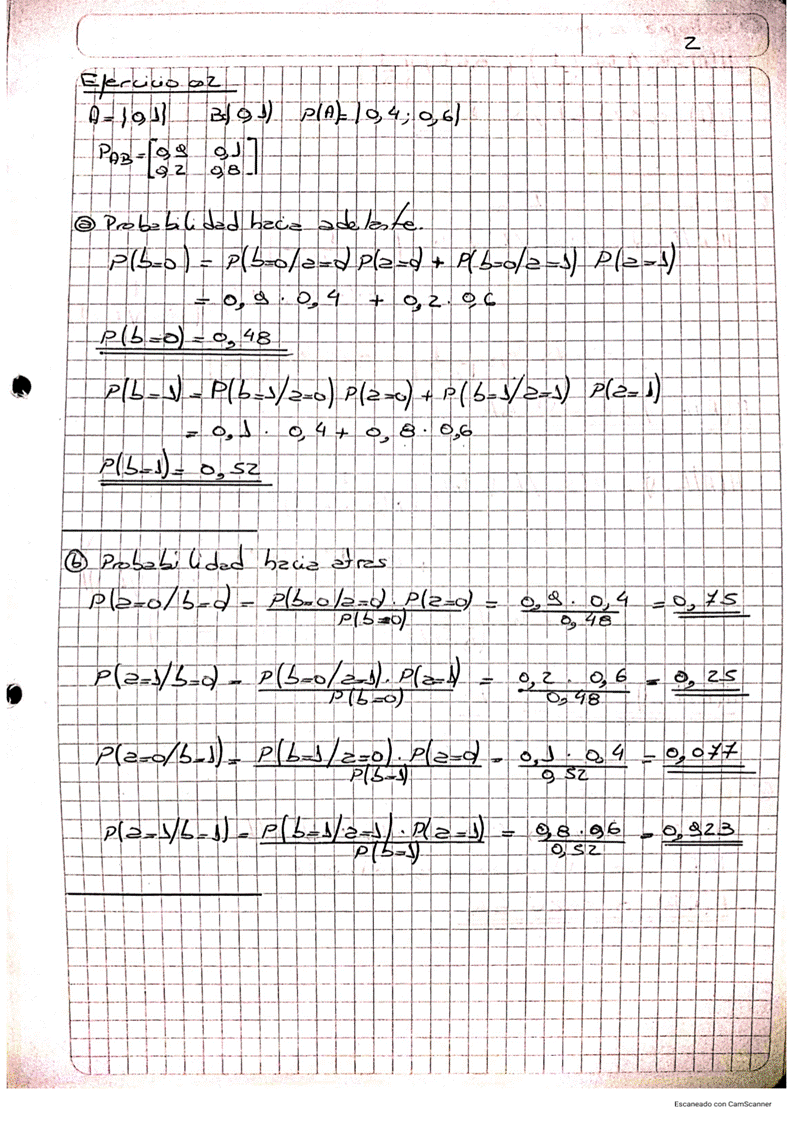 2
Ejercicio 02
A={0,1} B{0,1} P(A)={0,4; 0,6}
P_AB = [0,9 0,1
0,2 0,8]
ⓐ Probabilidad hacia adelante.
P(b=0) = P(b=0/a=0) P(a=0) + P(b=0/a=1) P(a=1)
= 0,9 · 0,4 + 0,2 · 0,6
P(b=0) = 0,48
P(b=1) = P(b=1/a=0) P(a=0) + P(b=1/a=1) P(a=1)
= 0,1 · 0,4 + 0,8 · 0,6
P(b=1) = 0,52
ⓑ Probabilidad hacia atras
P(a=0/b=0) = P(b=0/a=0) · P(a=0) / P(b=0) = 0,9 · 0,4 / 0,48 = 0,75
P(a=1/b=0) = P(b=0/a=1) · P(a=1) / P(b=0) = 0,2 · 0,6 / 0,48 = 0,25
P(a=0/b=1) = P(b=1/a=0) · P(a=0) / P(b=1) = 0,1 · 0,4 / 0,52 = 0,077
P(a=1/b=1) = P(b=1/a=1) · P(a=1) / P(b=1) = 0,8 · 0,6 / 0,52 = 0,923
Escaneado con CamScanner